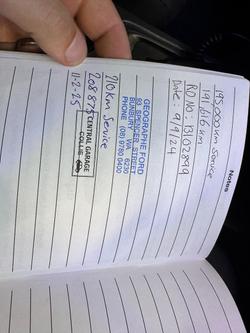 Notes
195,000km Service
191,616 km
RO NO: 13102899
Date: 9/9/24
GEOGRAPHE FORD
SPENCER STREET
BUNBURY WA 6230
PHONE (08) 9780 0400
210km Service
208 875
CENTRAL GARAGE
COLLIE
11-2-25